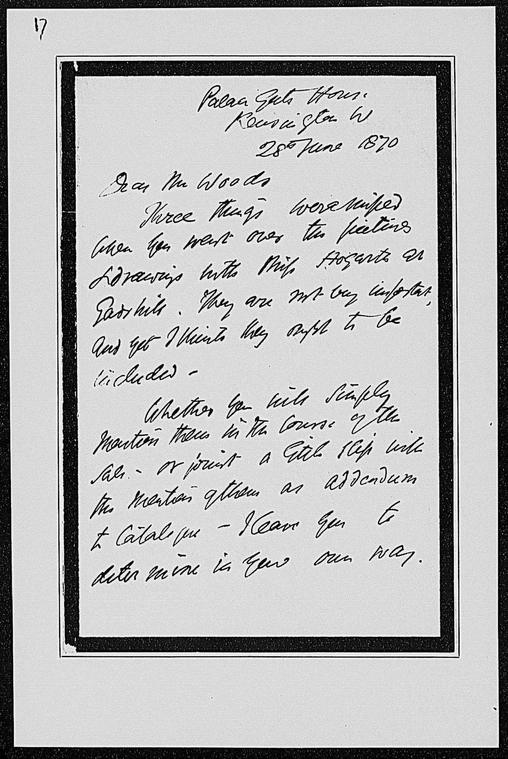 17
Palace Gate House
Kensington W
28th June 1870
Dear Mr Woods
Three things were missed
when you went over the pictures
& drawings with Miss Hogarth at
Gadshill. They are not very important,
and yet I think they ought to be
included –
Whether you will simply
mention them in the course of the
Sale – or print a little slip with
the mention of them as addendum
to Catalogue – I leave you to
determine in your own way.